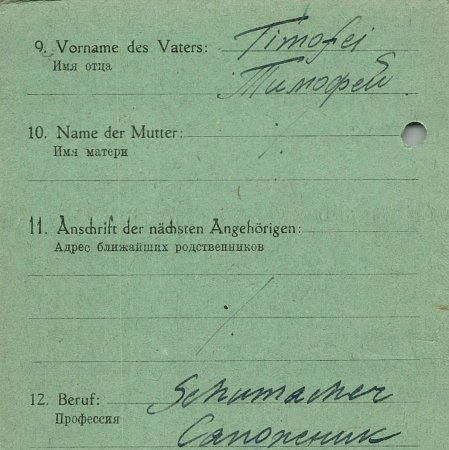 9. Vorname des Vaters: Timofei
Имя отца Тимофей
10. Name der Mutter:
Имя матери
11. Anschrift der nächsten Angehörigen:
Адрес ближайших родственников
12. Beruf: Schumacher
Профессия Сапожник